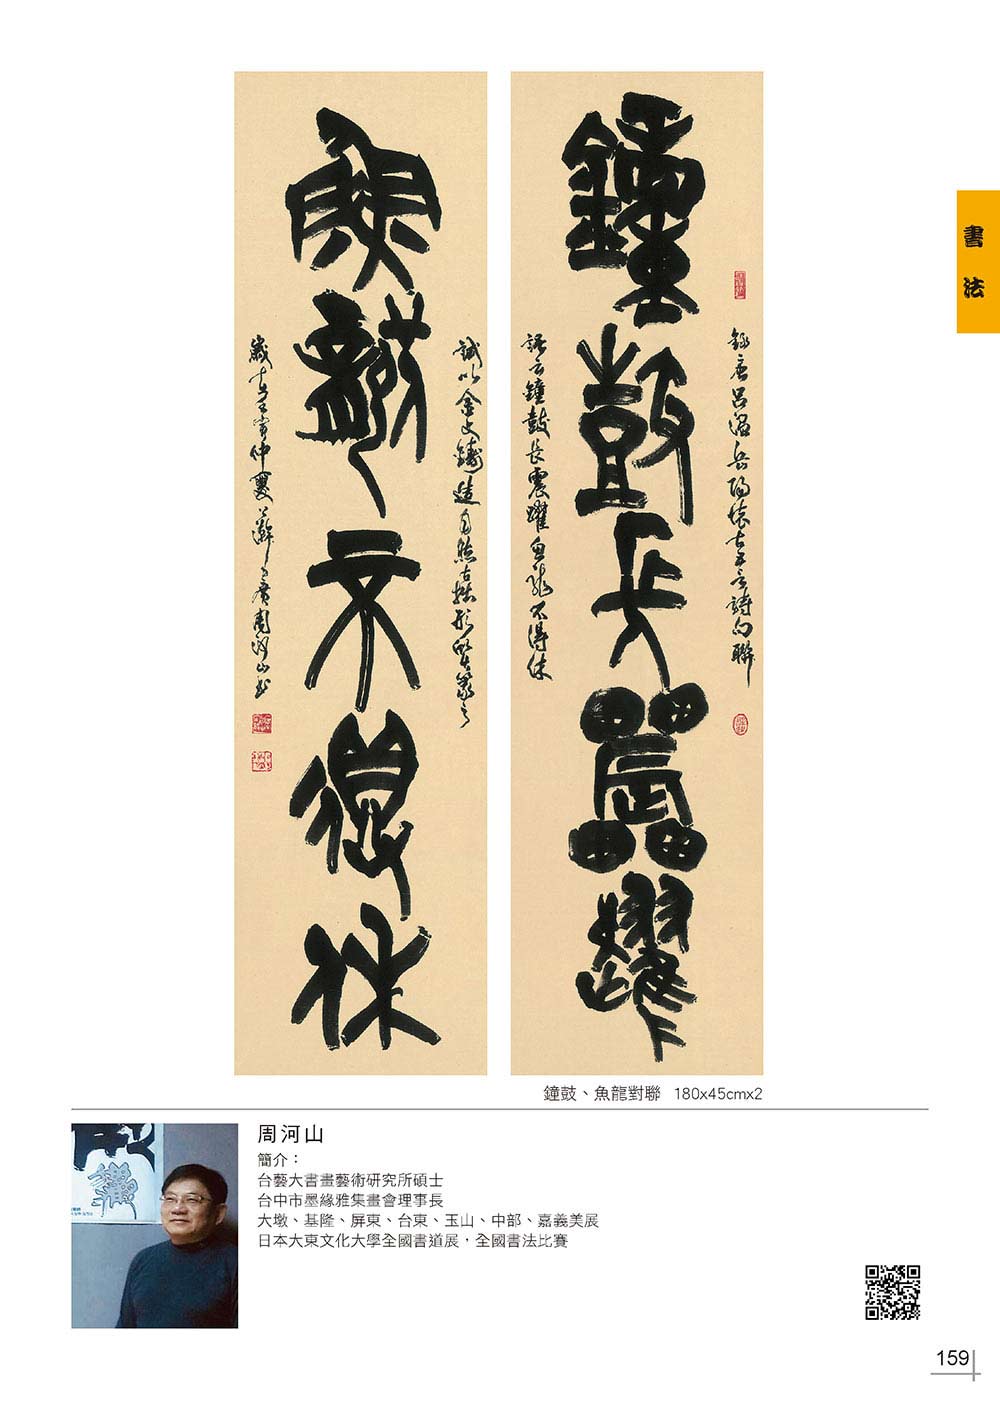 書法
錄唐呂溫岳陽懷古五言詩句聯
鐘鼓長震耀
語云鐘鼓長震耀魚龍不得休
試以金文鑄造自然古拙形質篆之
魚龍不得休
周河山書
鐘鼓、魚龍對聯 180x45cmx2
周河山
簡介：
台藝大書畫藝術研究所碩士
台中市墨緣雅集畫會理事長
大墩、基隆、屏東、台東、玉山、中部、嘉義美展
日本大東文化大學全國書道展，全國書法比賽
159